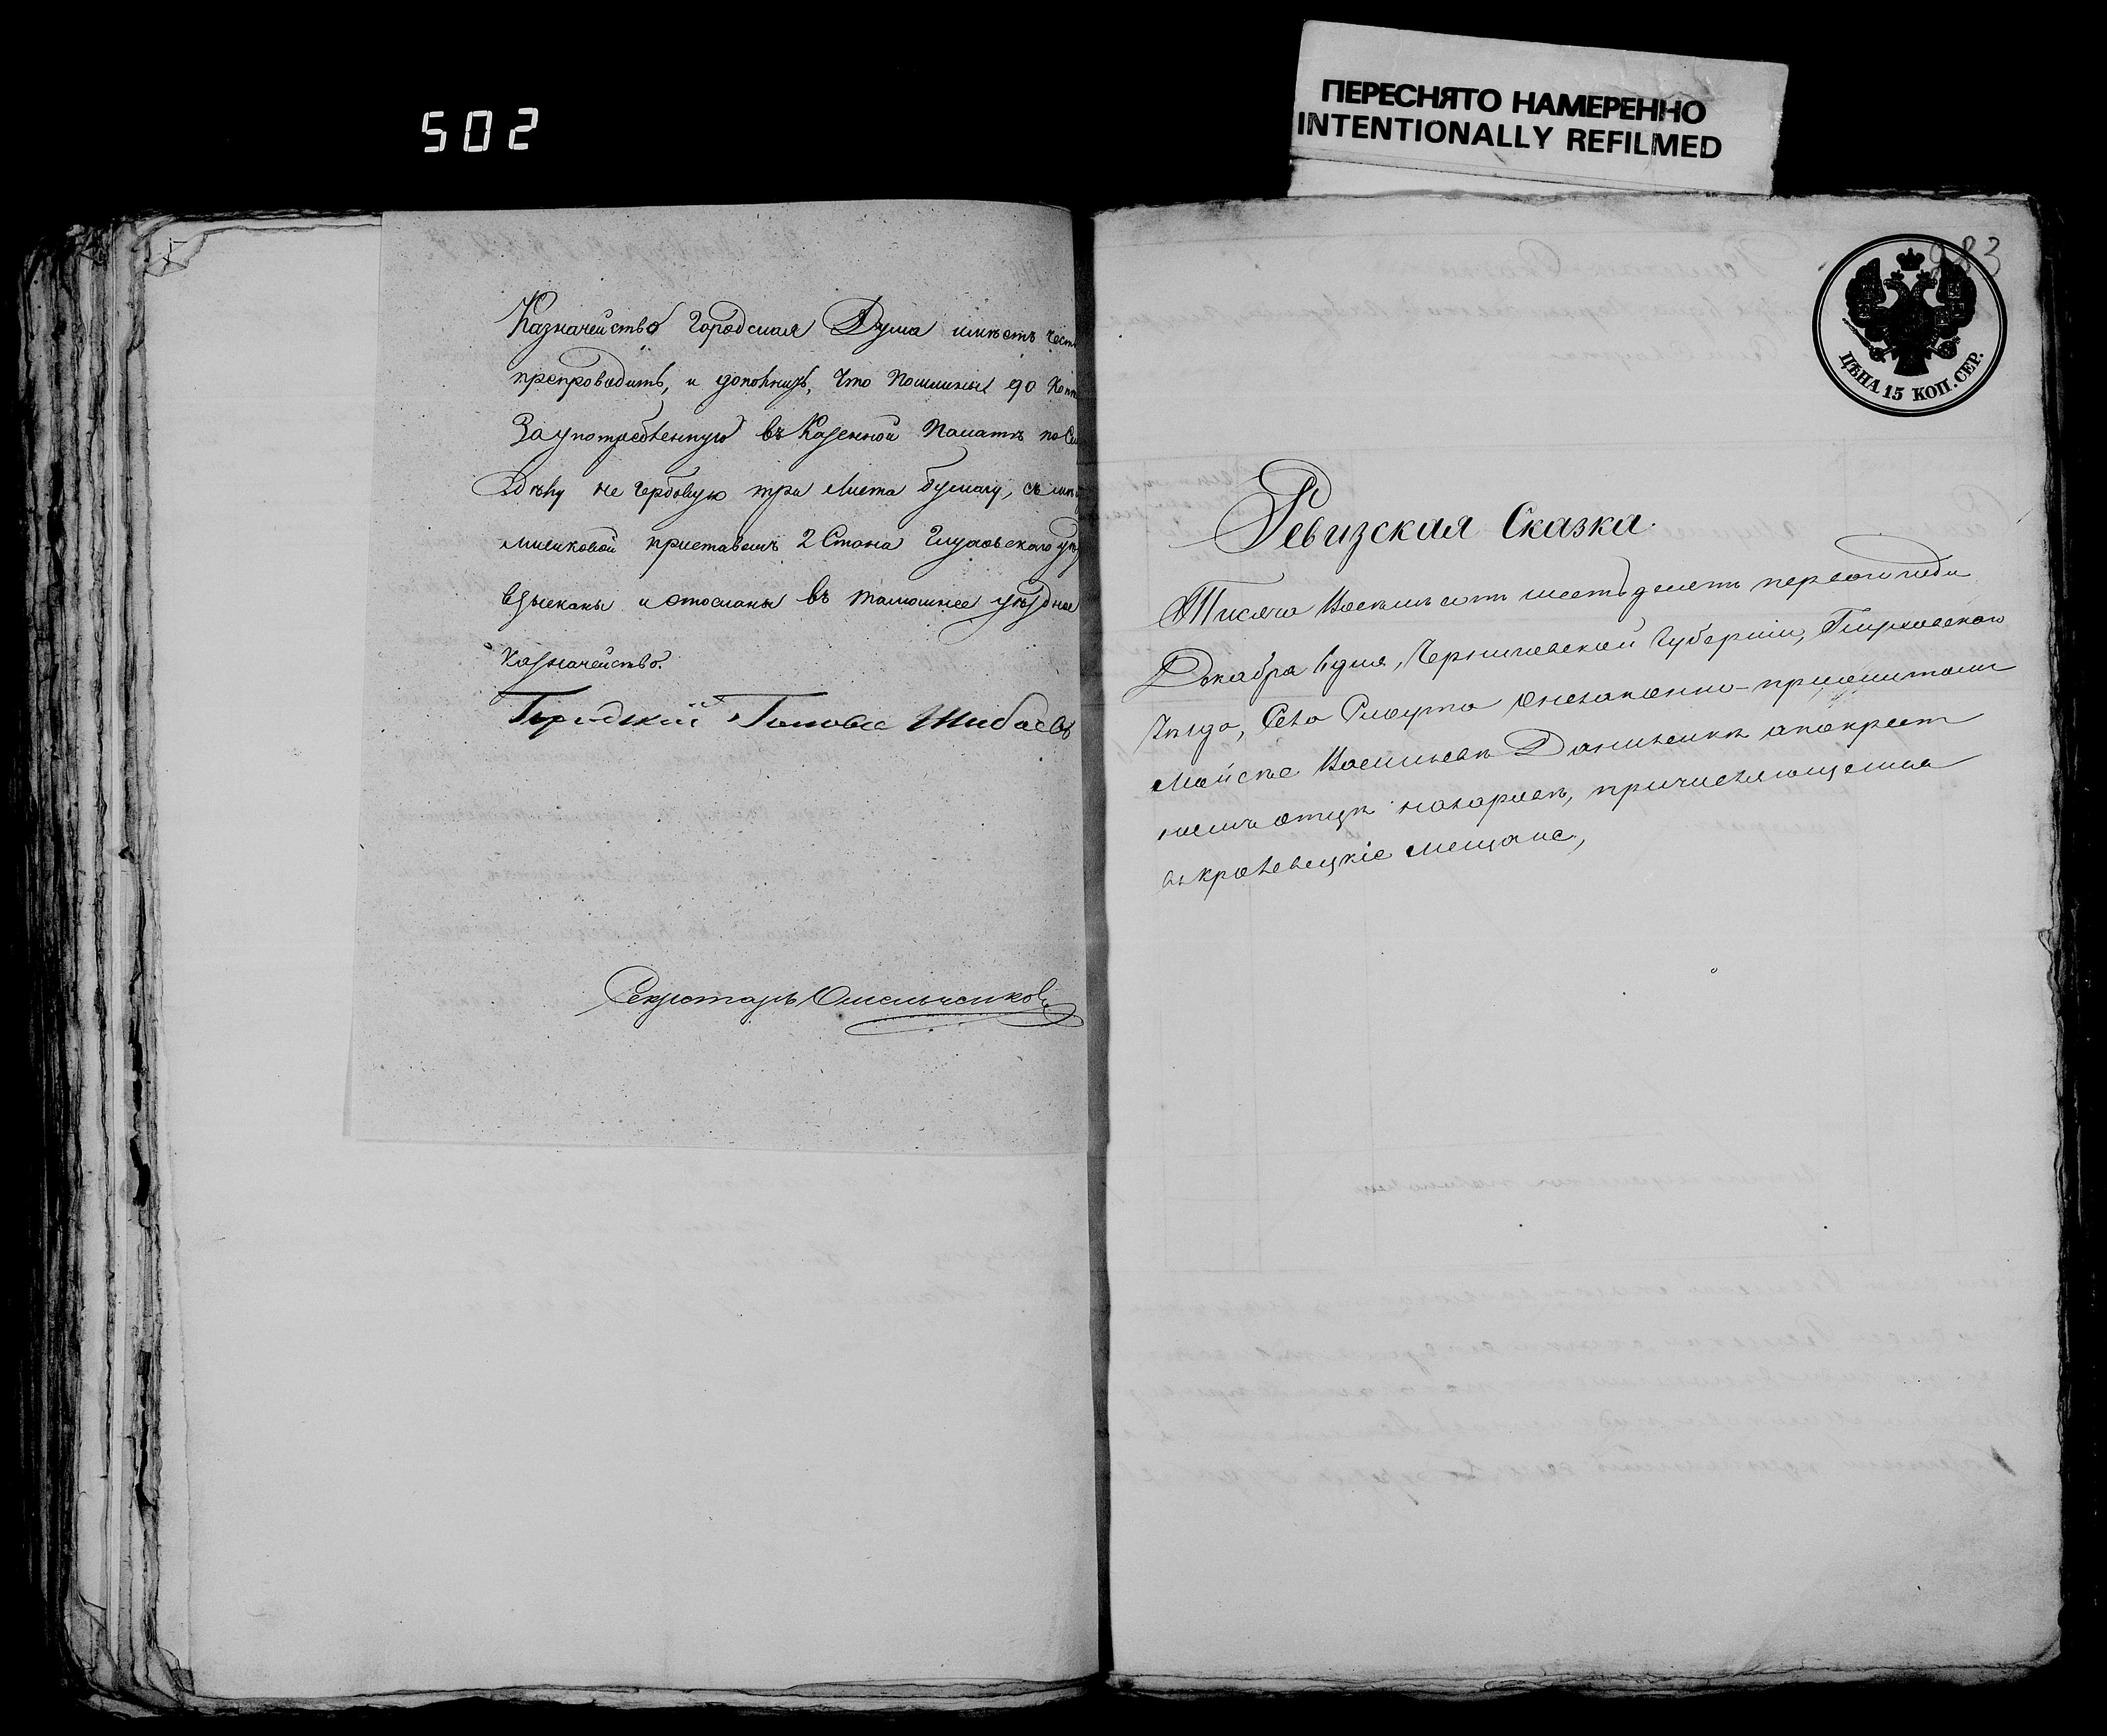 502
ПЕРЕСНЯТО НАМЕРЕННО
INTENTIONALLY REFILMED
Казначейство Городская Дума имѣетъ чест
препроводить, и дополнить, что пошлины 90 коп
За употребленную въ Казенной Палатѣ по
дѣлу не гербовую три листа бумагу, съ
приставомъ 2 Стана Глуховскаго
взысканы и отосланы въ тамошнее уѣздное
Казначейство.
Городской Голова Шибаевъ
Секретарь Омельченковъ
983
ЦѢНА 15 КОП. СЕР.
Ревизская Сказка.
Тысяча Восемь сотъ шестьдесятъ перваго года
Декабря дня, Черниговской Губерніи, Глуховскаго
уѣзда, Села о незаконно-прижитомъ
Васильевѣ Даниленкѣ а по крест
номъ отцѣ, причисляющемся
въ кролевецкіе мещане,